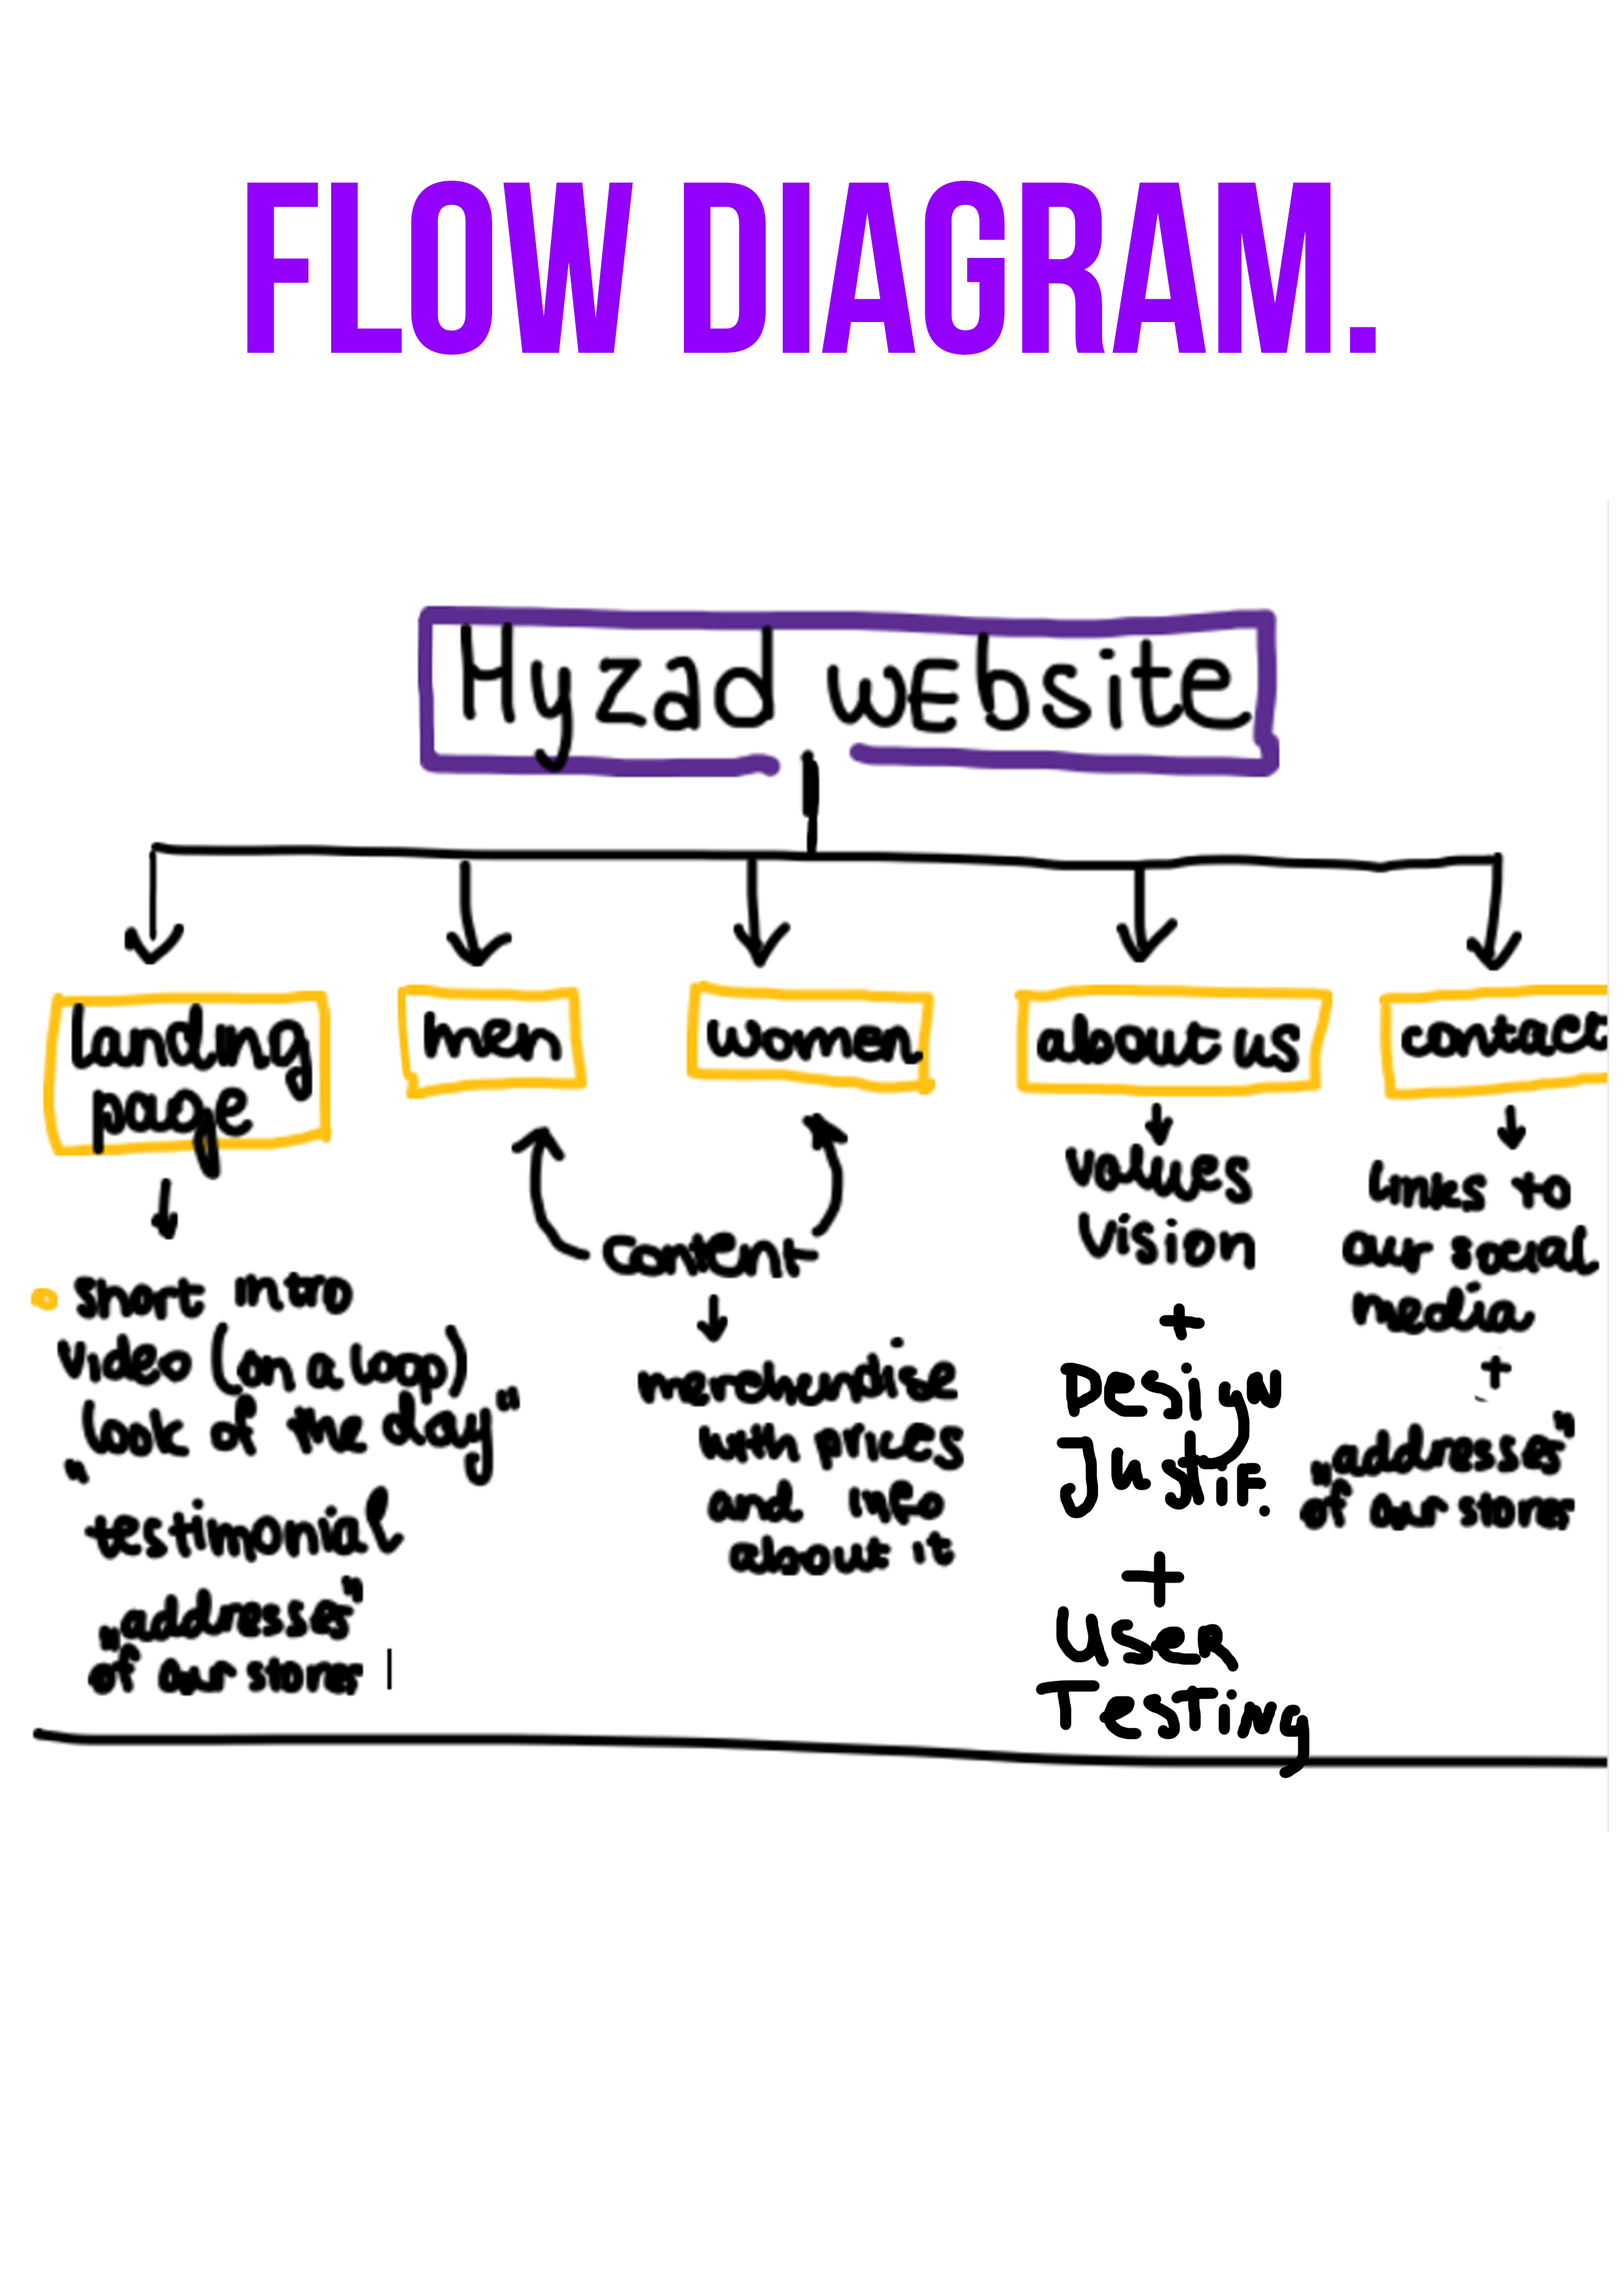 FLOW DIAGRAM.
Hyzad wEbsite
landing
page
men
women
about us
contact
short intro
video (on a loop)
"look of the day"
testimonial
"addresses"
of our stores
content
merchendise
with prices
and info
about it
values
Vision
+
Design
Justif.
+
User
Testing
links to
our social
media
+
"addresses"
of our stores